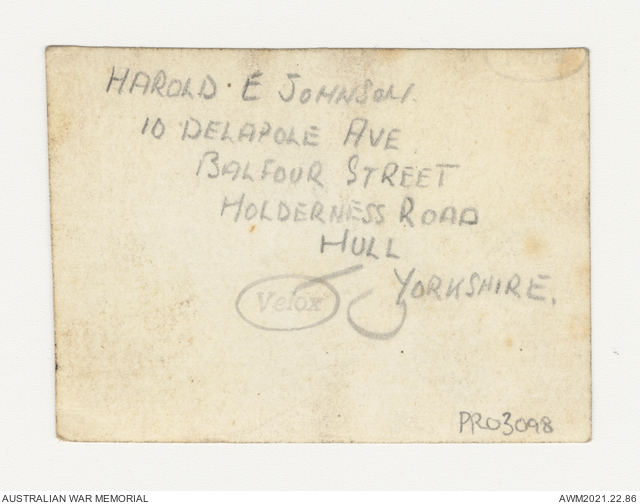 HAROLD. E JOHNSON.
10 DELAPOLE AVE
BALFOUR STREET
HOLDERNESS ROAD
HULL
YORKSHIRE.
Velox
PR03098
AUSTRALIAN WAR MEMORIAL
AWM2021.22.86